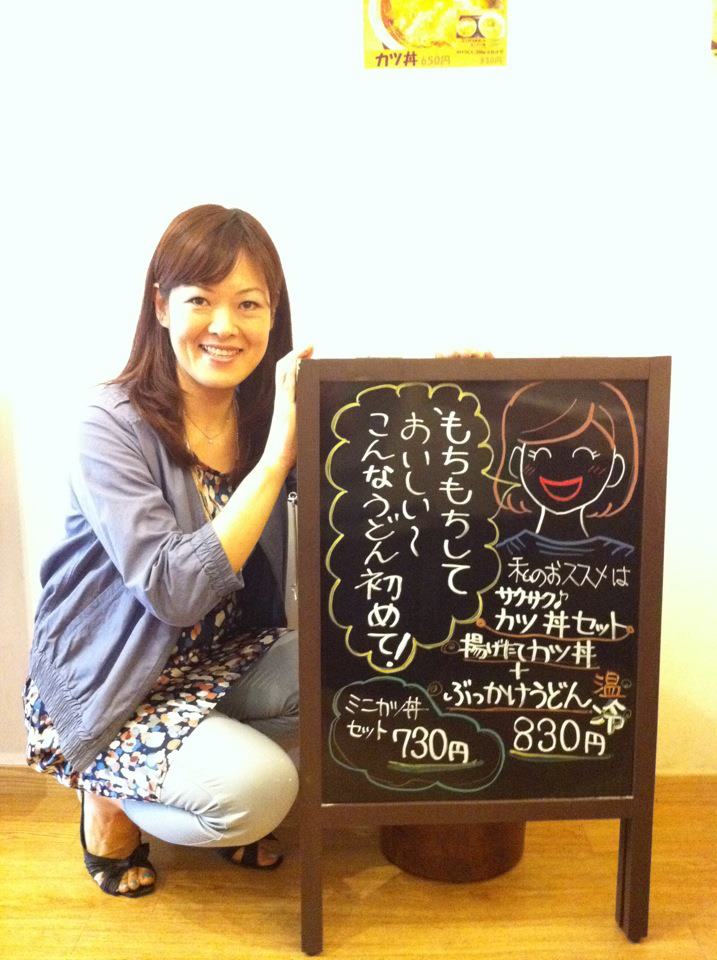 カツ丼 650円
830円
もちもちして
おいしい〜
こんなうどん初めて!
私のおススメは
サクサク♪
カツ丼セット
揚げたてカツ丼
+
ぶっかけうどん 温 冷
830円
ミニカツ丼
セット 730円